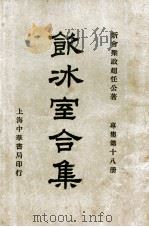 新會梁啟超任公著
專集第十八冊
飲冰室合集
上海中華書局印行
www.toutu.com